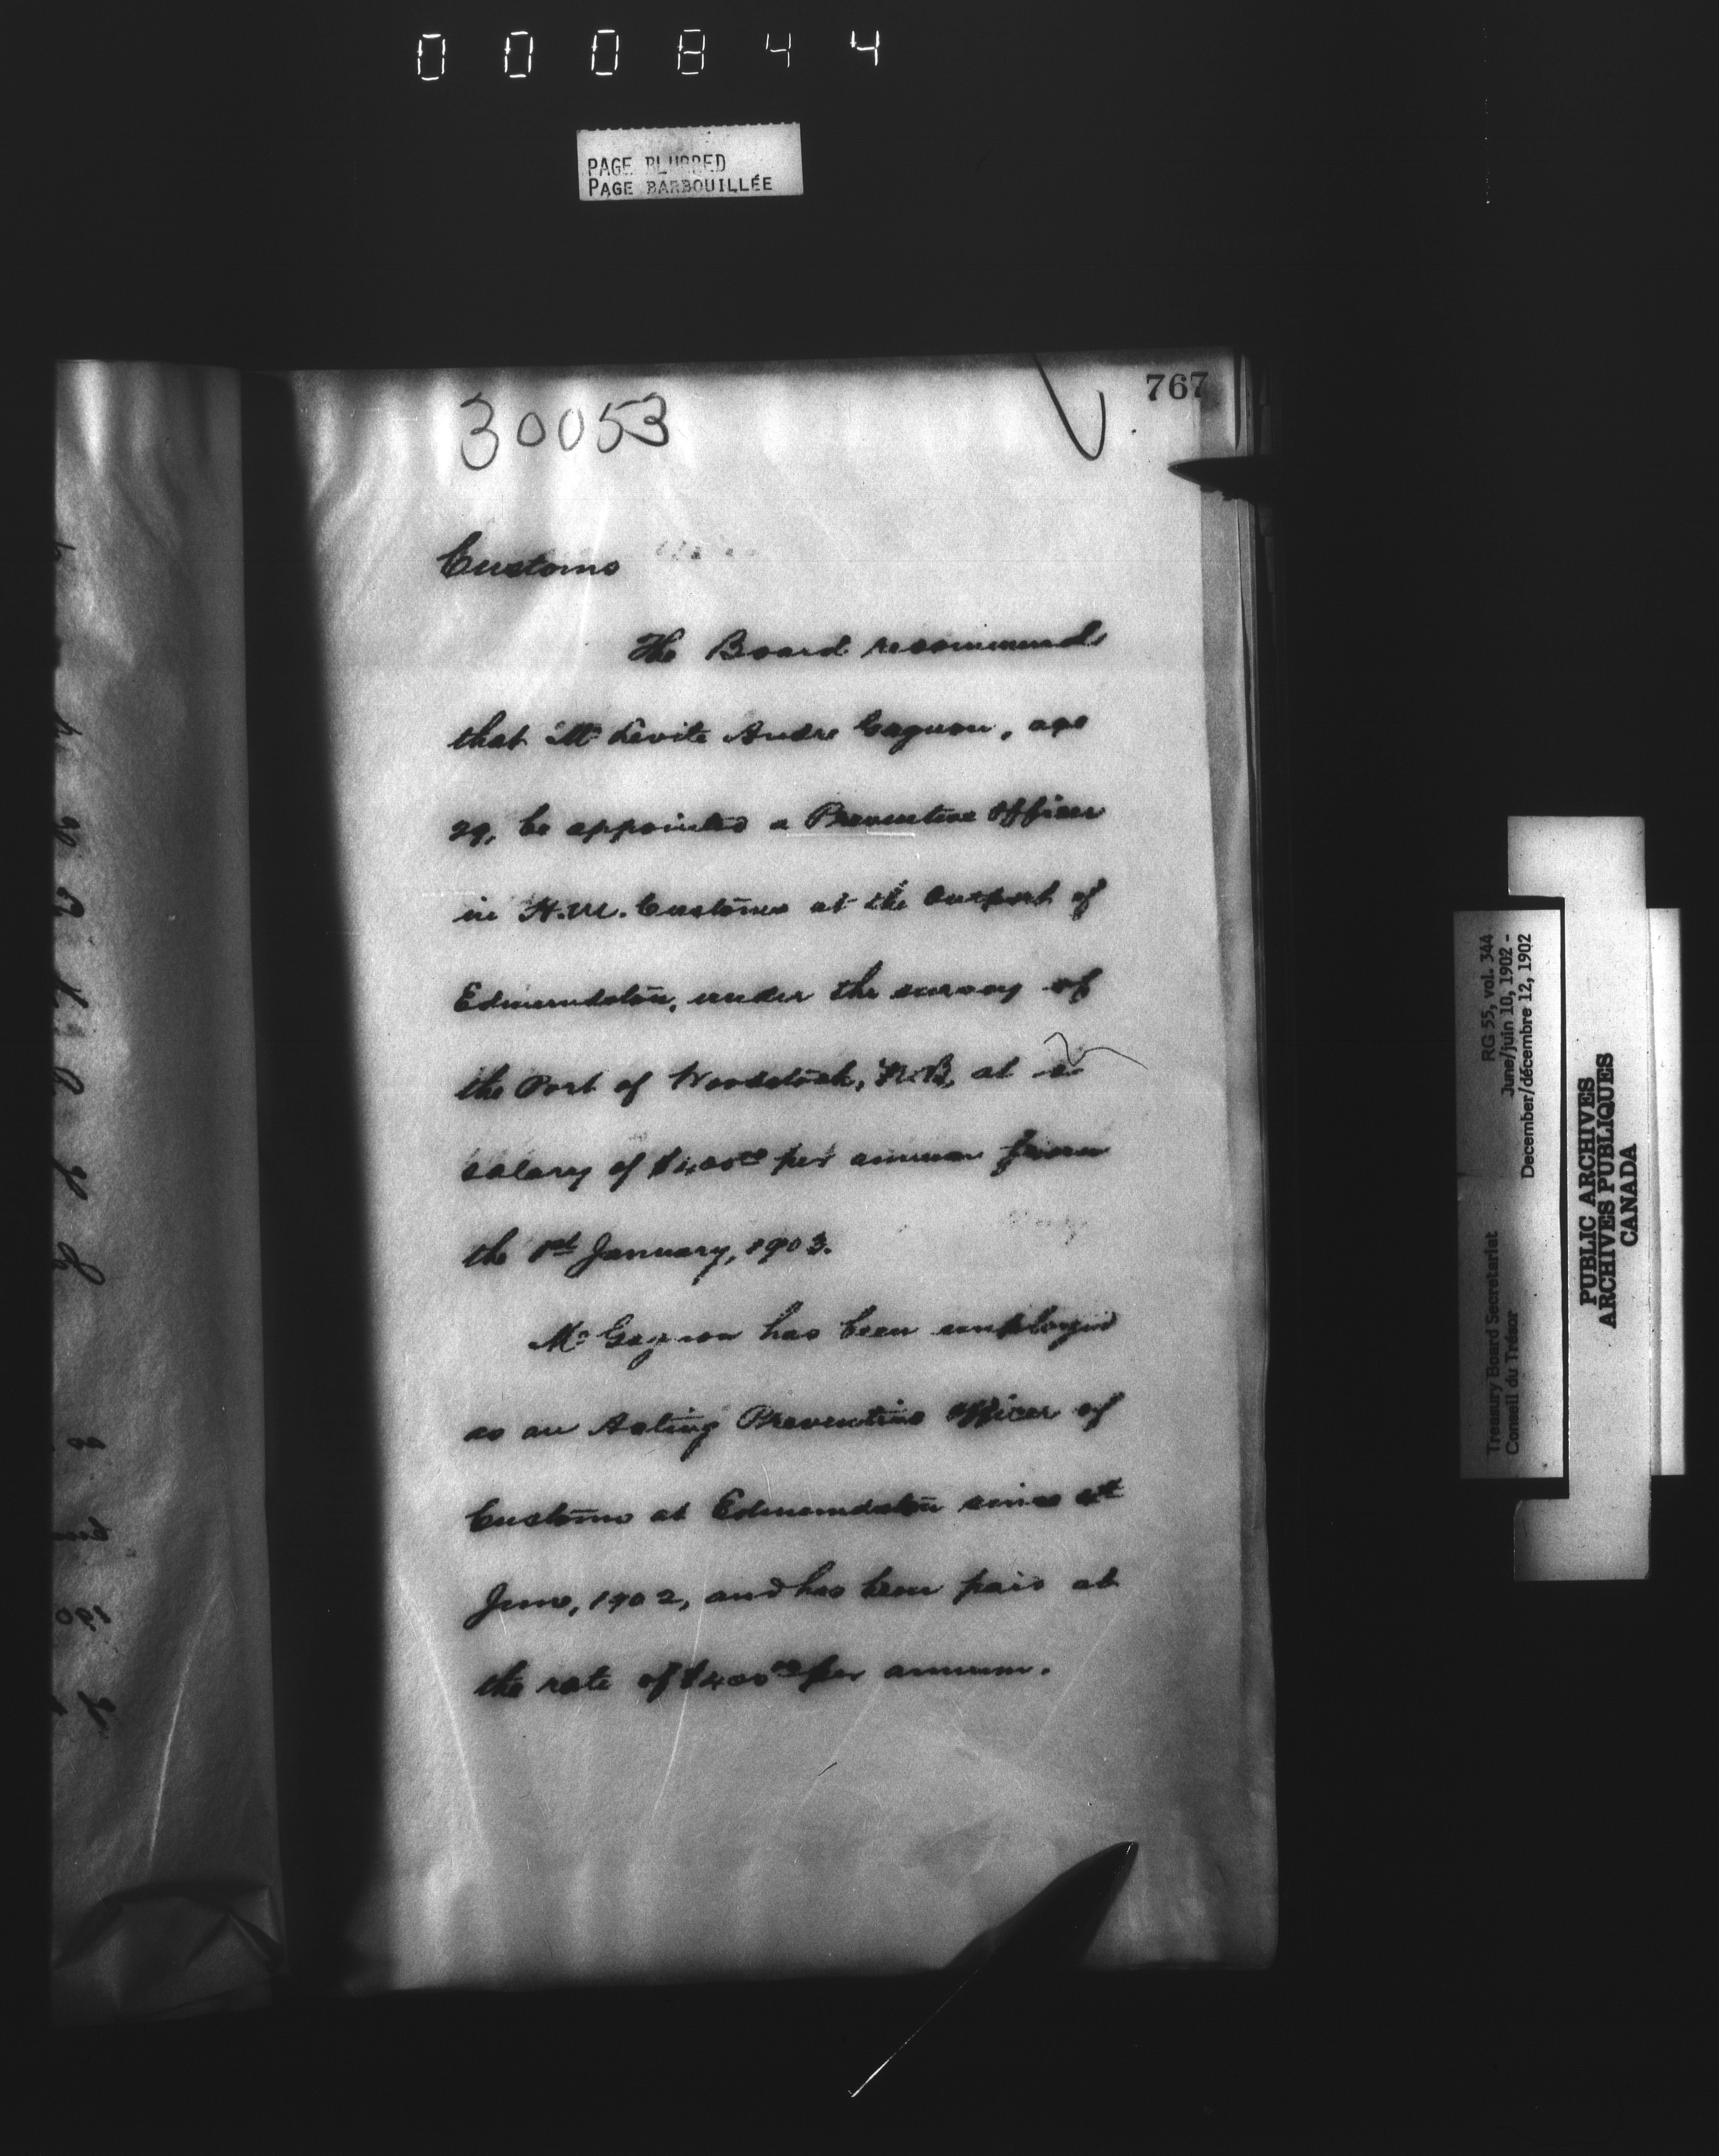 000844
PAGE BLURRED
PAGE BARBOUILLÉE
767
30053
Customs
The Board recommend
that Mr Levite Andre Gagnon, age
29, be appointed a Preventive Officer
in H.M. Customs at the Outport of
Edmundston, under the survey of
the Port of Woodstock, N.B, at a
salary of $400.00 per annum from
the 1st January, 1903.
Mr Gagnon has been employed
as an Acting Preventive Officer of
Customs at Edmundston since 1st
June, 1902, and has been paid at
the rate of $400.00 per annum.
Treasury Board Secretariat
Conseil du Trésor
RG 55, vol. 344
June/juin 10, 1902 -
December/décembre 12, 1902
PUBLIC ARCHIVES
ARCHIVES PUBLIQUES
CANADA